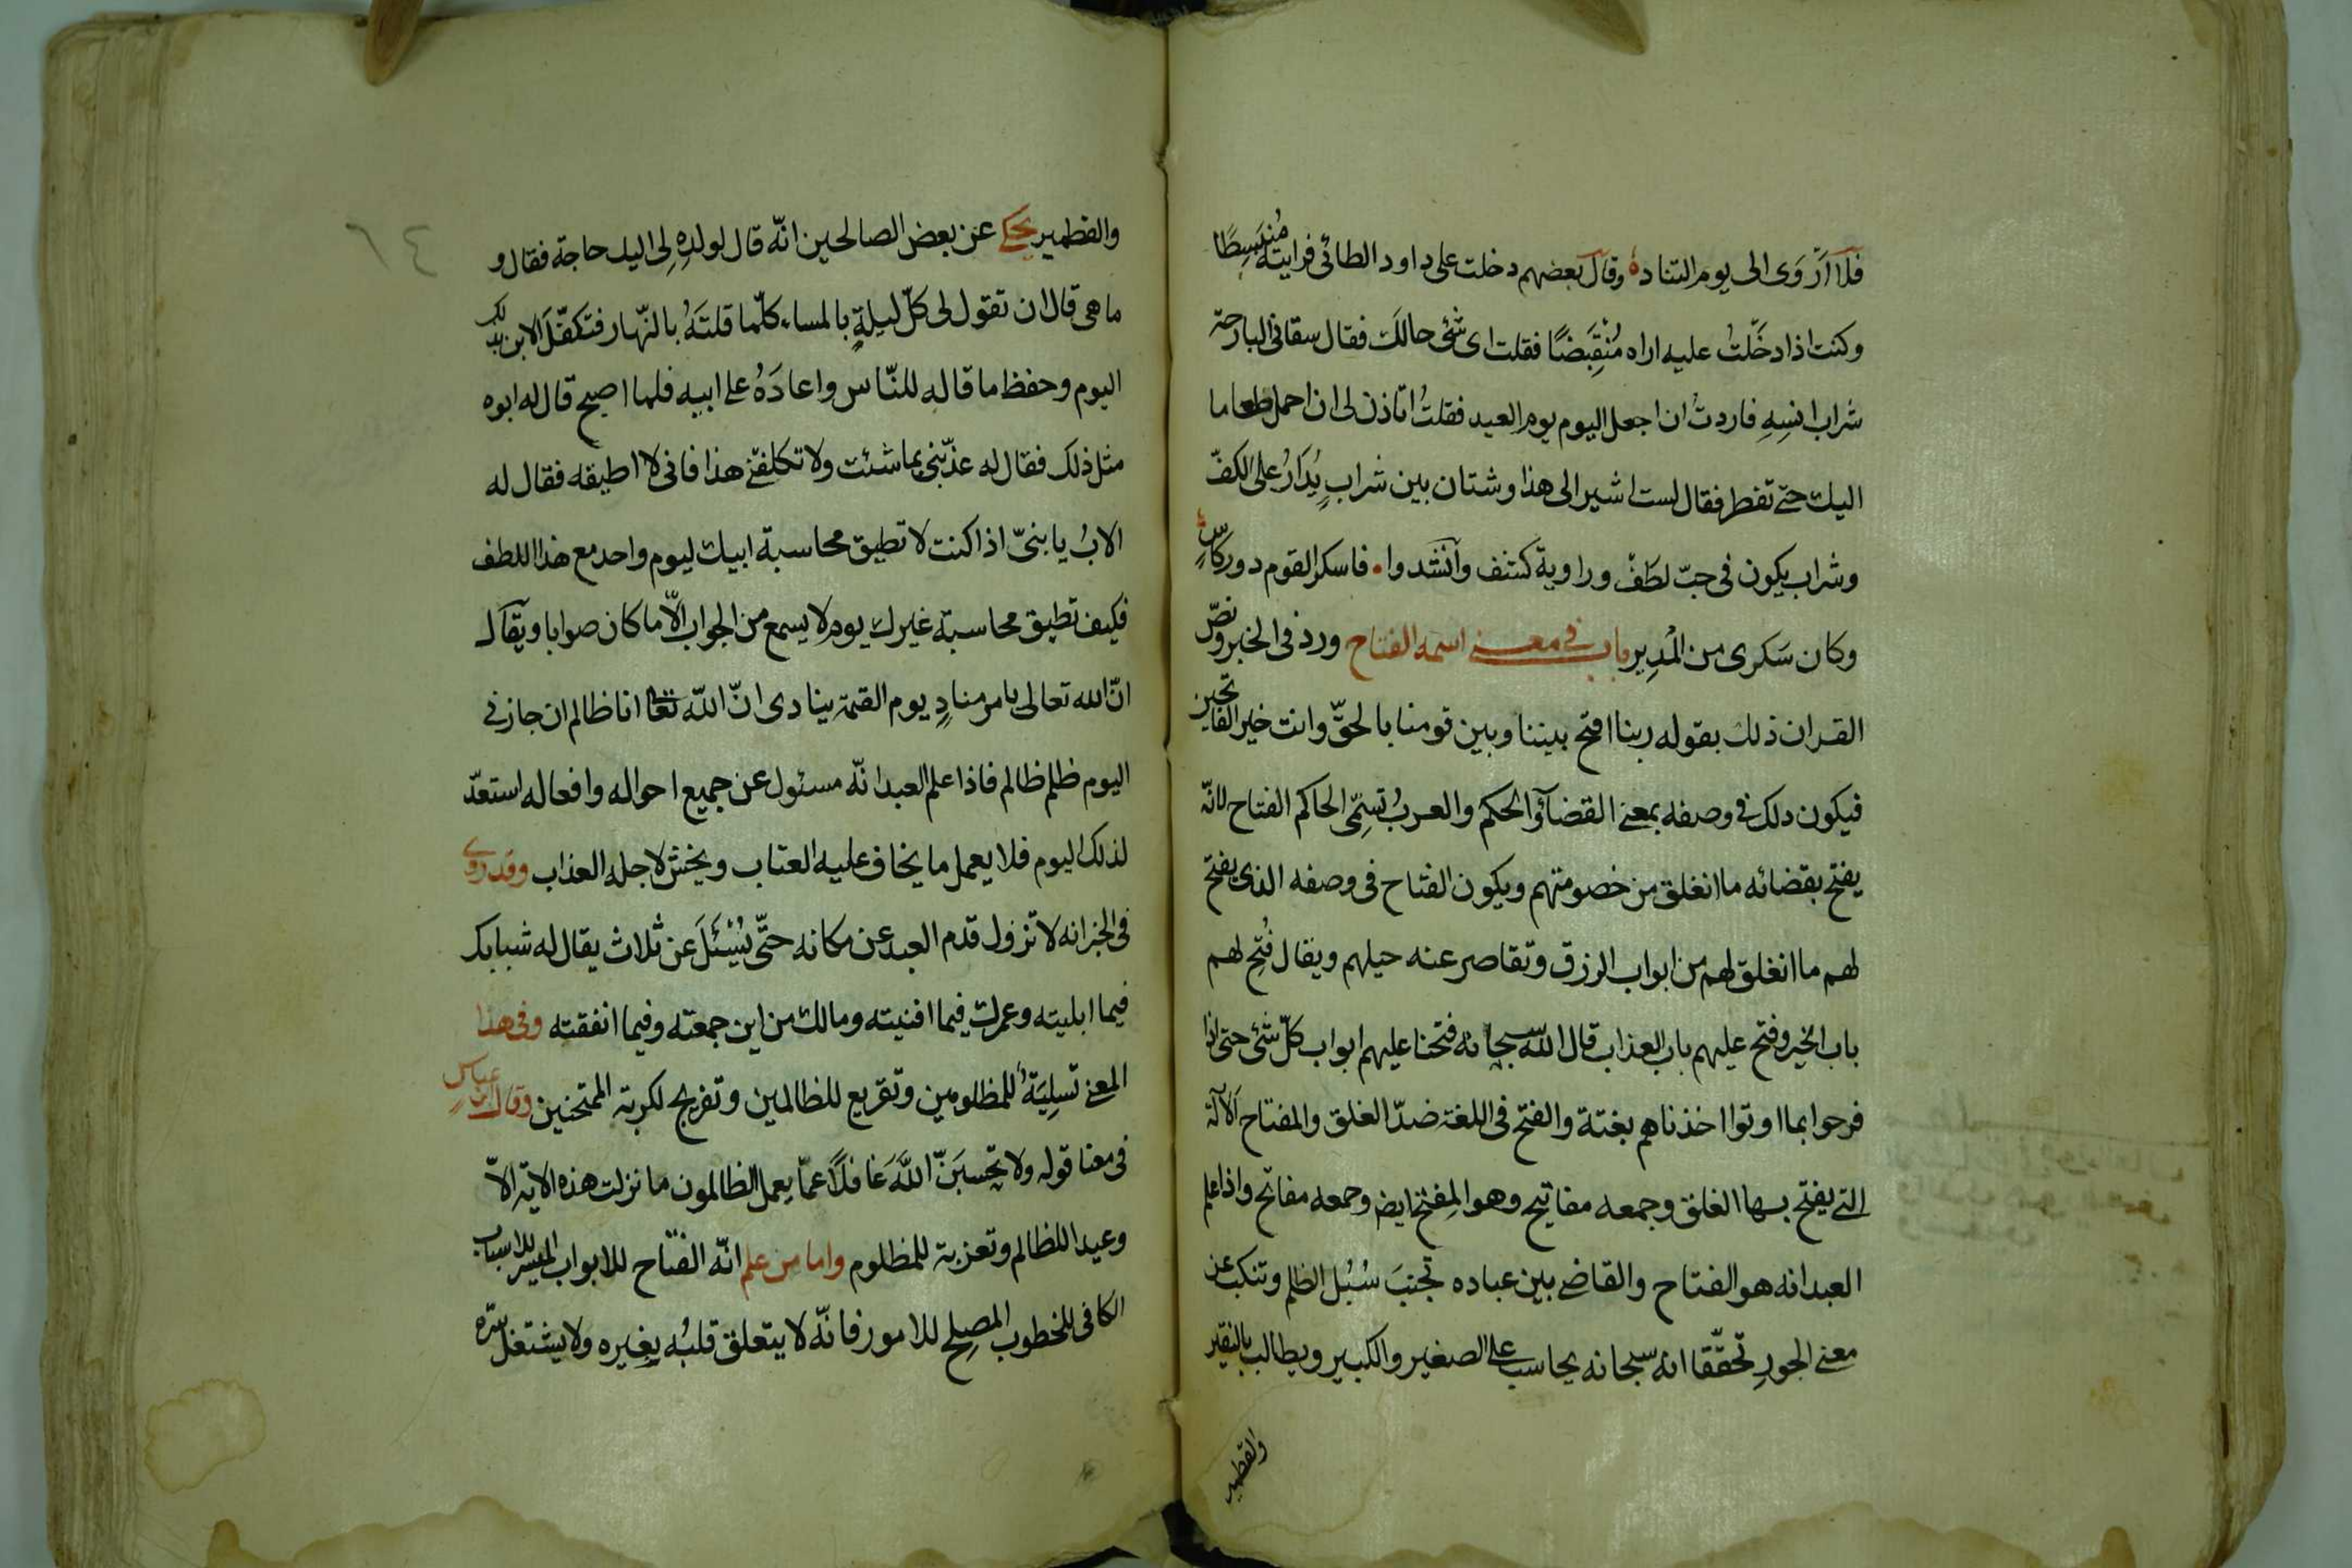 فلا اَرْوَى الى يوم التنادهْ وقال بعضهم دخلت على داود الطائى فرايته مُنبسِطًا
وكنت اذا دخَلتُ عليه اراه مُنْقَبِضًا فقلت اى شئ حالك فقال سقانى البارحة
شراب انسِهِ فاردتُ ان اجعل اليوم يوم العيد فقلتُ اتاذن لى ان احمل طعاما
اليك حتى تفطر فقال لست اشير الى هذا وشتان بين شرابٍ يُدَارُ على الكفّ
وشراب يكون فى حبّ لطف وراوية كشف وانشدوا . فاسكر القوم دور كاسٍ
وكان سَكرى من المُدِير باب فى معنى اسمه الفتاح ورد فى الخبر ونصّ
القران ذلك بقوله ربنا افتح بيننا وبين قومنا بالحقّ وانت خير الفاتحين
فيكون ذلك فى وصفه بمعنى القضآءِ والحكم والعربُ تسمّى الحاكم الفتاح لانّه
يفتح بقضائه ما انغلق من خصومتهم ويكون الفتاح فى وصفه الذى يفتح
لهم ما انغلق لهم من ابواب الرزق وتقاصر عنه حيلهم ويقال فُتِح لهم
باب الخير وفتح عليهم باب العذاب قال الله سبحانه فتحنا عليهم ابواب كلّ شئ حتى اذا
فرحوا بما اوتوا اخذناهم بغتة والفتح فى اللغة ضدّ الغلق والمفتاح الآلة
التى يفتح بها الغلق وجمعه مفاتيح وهو المِفتح ايضا وجمعه مفاتح واذا علم
العبد انه هو الفتاح والقاضى بين عباده تجنبَ سُبُل الظلم وتنكب عن
معنى الجورِ تحقّقا انه سبحانه يحاسب على الصغير والكبير ويطالب بالنقير
والقطمير
والقطمير يحكى عن بعض الصالحين انّه قال لولدِهِ لِى اليك حاجة فقال و
ما هى قال ان تقول لى كلّ ليلةٍ بالمساء كلّما قلتَهُ بالنّهار فتكفّلَ الابن بذلك
اليوم وحفظ ما قاله للنّاس واعادَهُ على ابيه فلما اصبح قال له ابوه
مثل ذلك فقال له عذّبنى بما شئت ولا تكلفنى هذا فانى لا اطيقه فقال له
الابُ يا بنىّ اذا كنت لا تطيق محاسبة ابيك ليوم واحد مع هذا اللطف
فكيف تطيق محاسبة غيرك يوم لا يسمع من الجواب الّا ما كان صوابا ويقال
انّ الله تعالى يامر منادٍ يوم القيمة ينادى انّ الله تعا انا ظالم ان جازنى
اليوم ظلم ظالم فاذا علم العبد انّه مسئول عن جميع احواله وافعاله استعدّ
لذلك اليوم فلا يعمل ما يخاف عليه العتاب ويخش لاجله العذاب وقد روى
فى الخبر انه لا تزول قدم العبد عن مكانه حتّى يُسْئَلَ عن ثلاث يقال له شبابك
فيما ابليته وعمرك فيما افنيته ومالك من اين جمعته وفيما انفقته وفى هذا
المعنى تسلِيَةٌ للمظلومين وتقريع للظالمين وتفريج لكربة الممتحنين وقال ابن عباس
فى معنا قوله ولا تحسبَنّ اللهَ غافلًا عمّا يعمل الظالمون ما نزلت هذه الاية الّا
وعيدا للظالم وتعزية للمظلوم واما من علم انّه الفتاح للابواب الميسر للاسباب
الكافى للخطوب المصلِح للامور فانّه لا يتعلق قلبُه بغيره ولا يشتغل سرّه